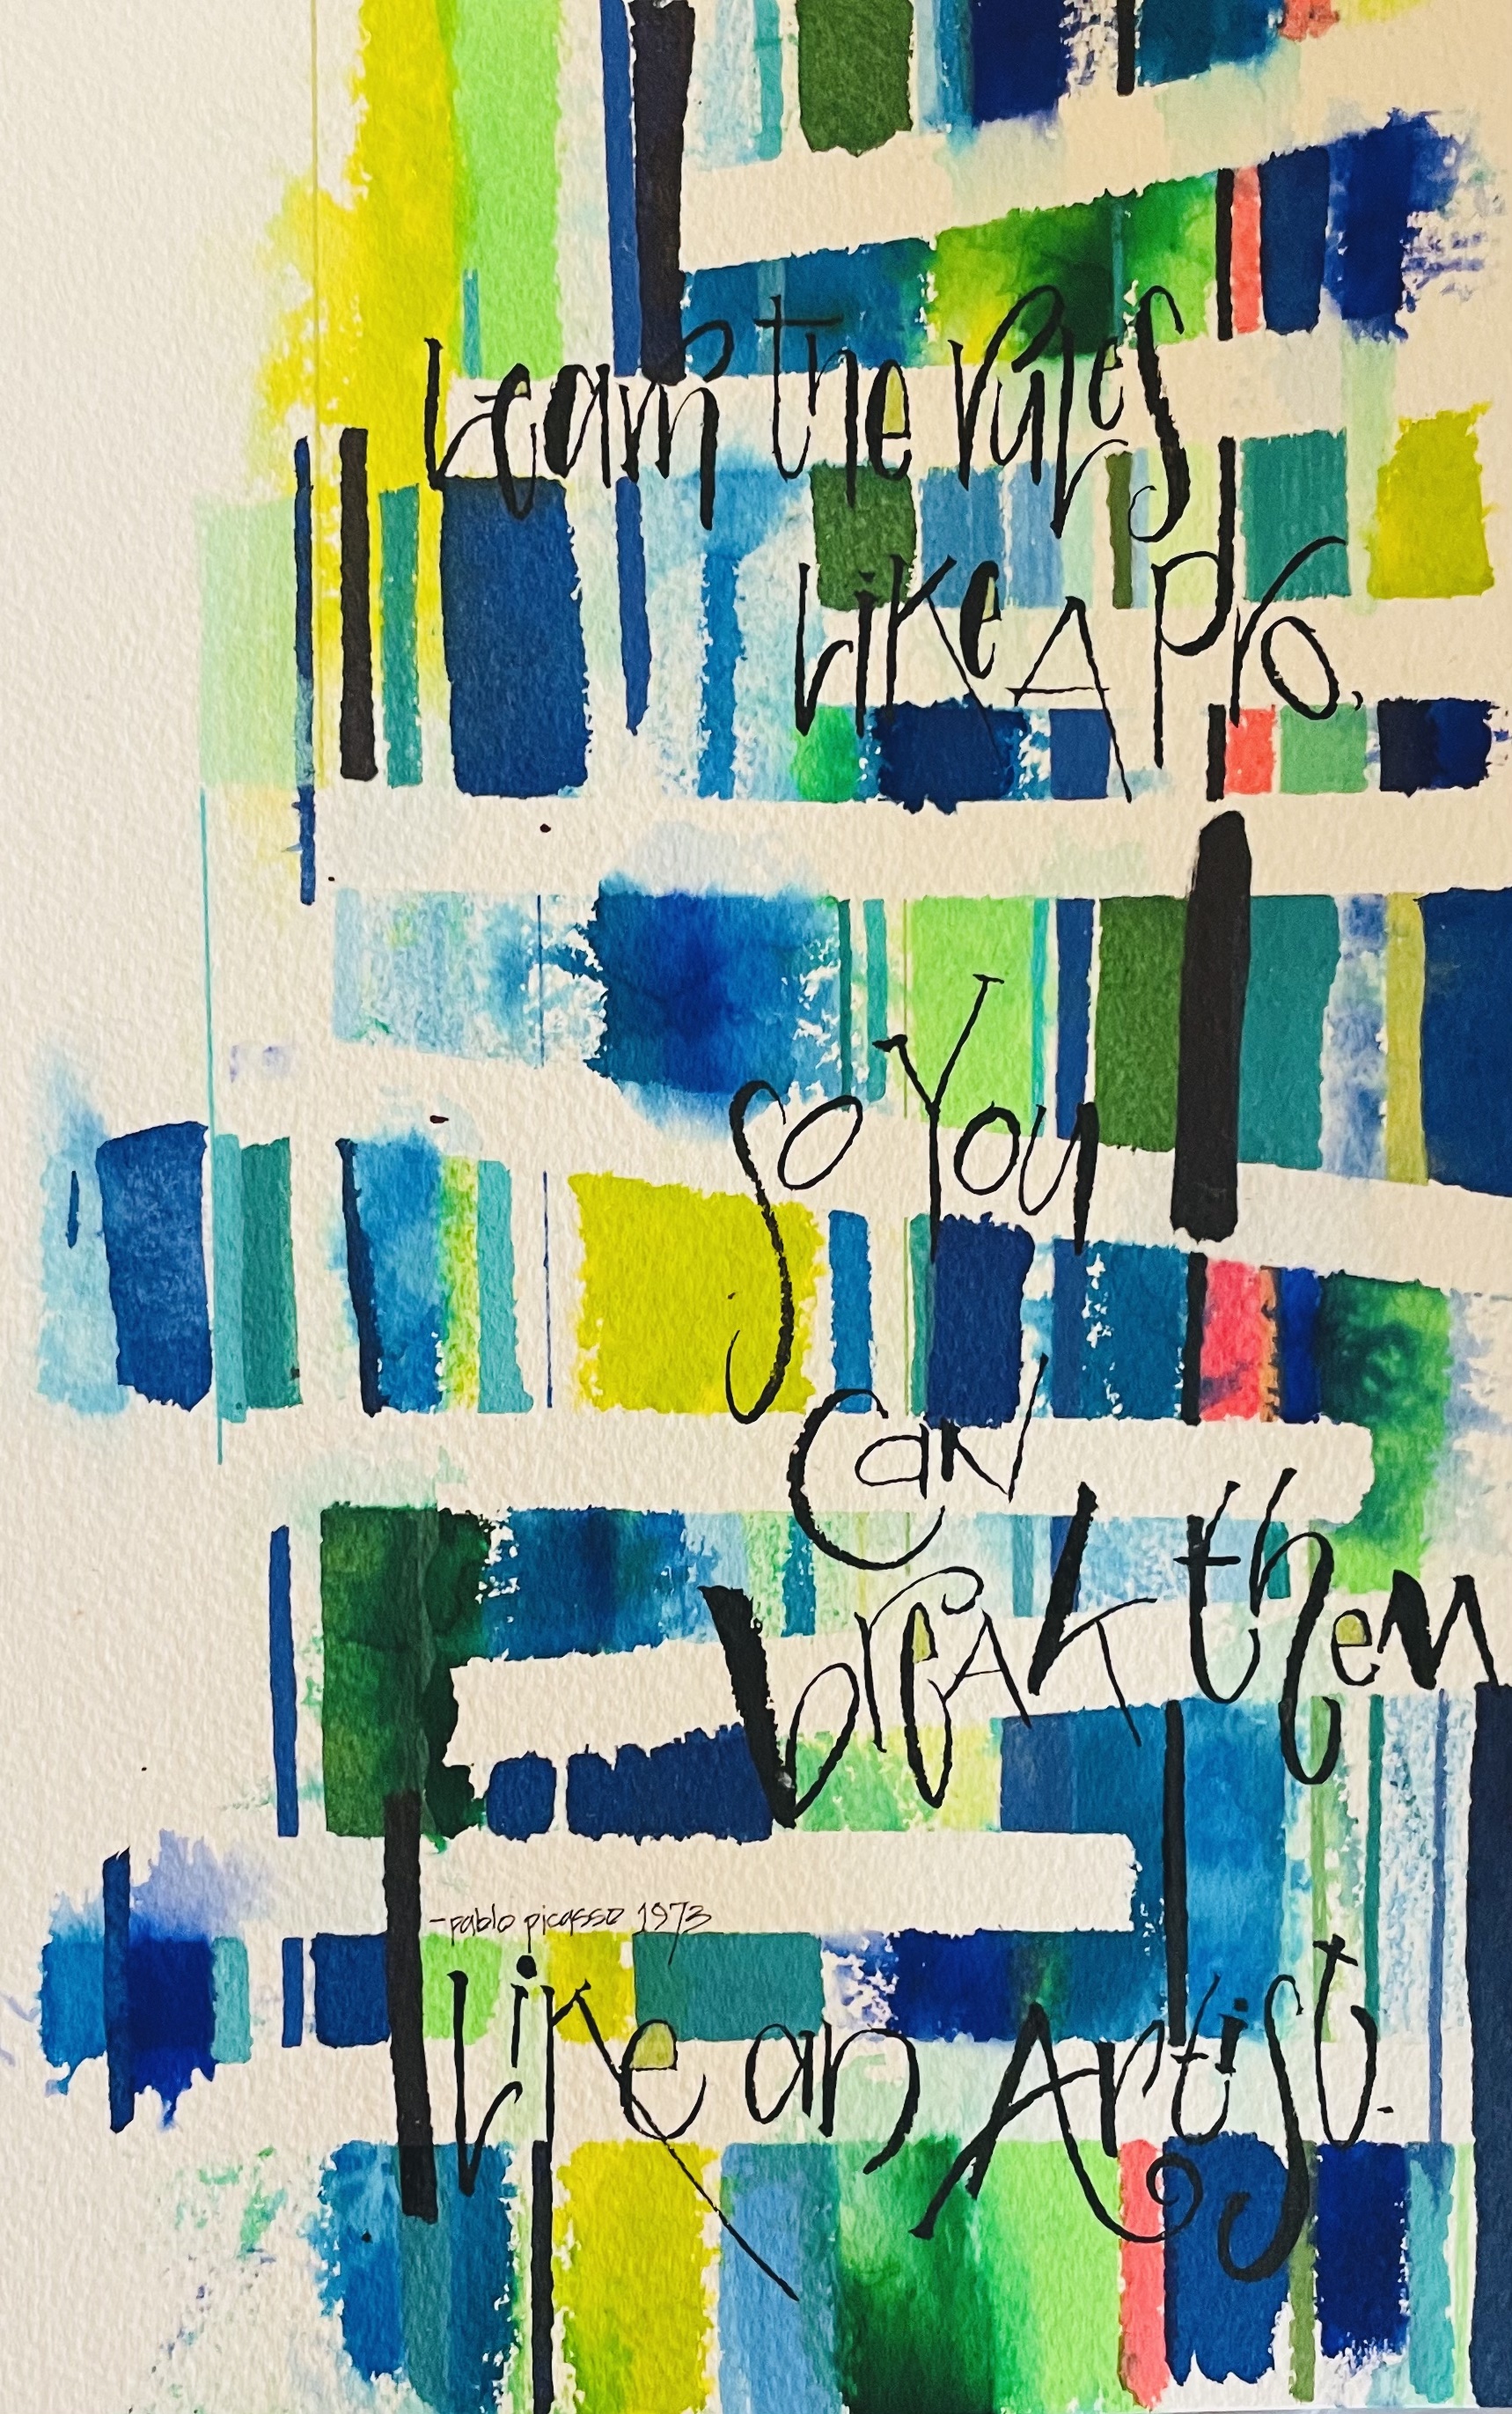 Learn the rules
Like A Pro.
So You
Can
break them
-pablo picasso 1973
Like an Artist.